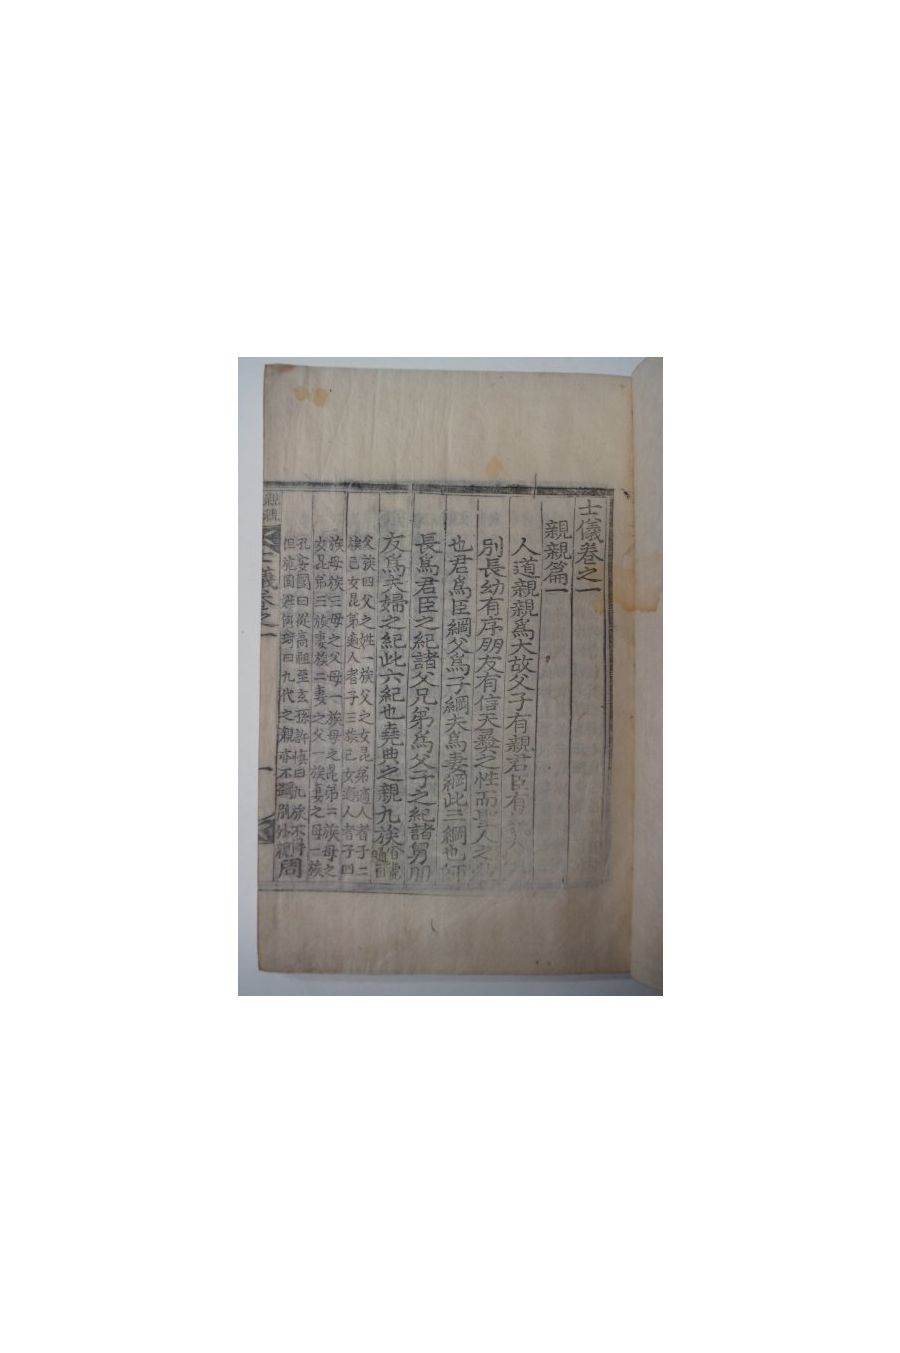 士儀卷之一
親親篇一
人道親親爲大故父子有親君臣有
別長幼有序朋友有信天彛之性而聖人之
也君爲臣綱父爲子綱夫爲妻綱此三綱也師
長爲君臣之紀諸父兄弟爲父子之紀諸舅朋
友爲夫婦之紀此六紀也堯典之親九族白虎
通曰
父族四父之姓一族父之女昆弟適人者子二
族己女昆弟適人者子三族己女適人者子四
族母族三母之父母一族母之昆弟二族母之
女昆弟三族妻族二妻之父一族妻之母一族
孔安國曰從高祖至玄孫許愼曰九族不得
但施同姓 曰九代之親亦不 周
士儀卷之一
一